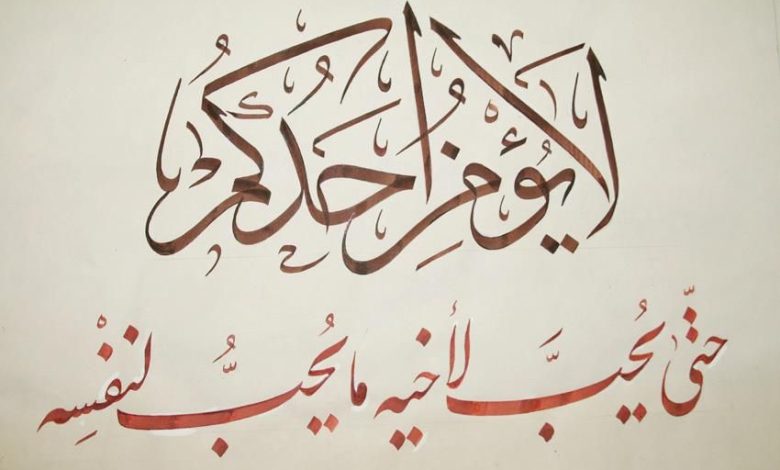 لا يُؤمِنُ أَحَدُكُمْ
حتّى يُحِبَّ لأخيه ما يُحِبُّ لنفْسِه